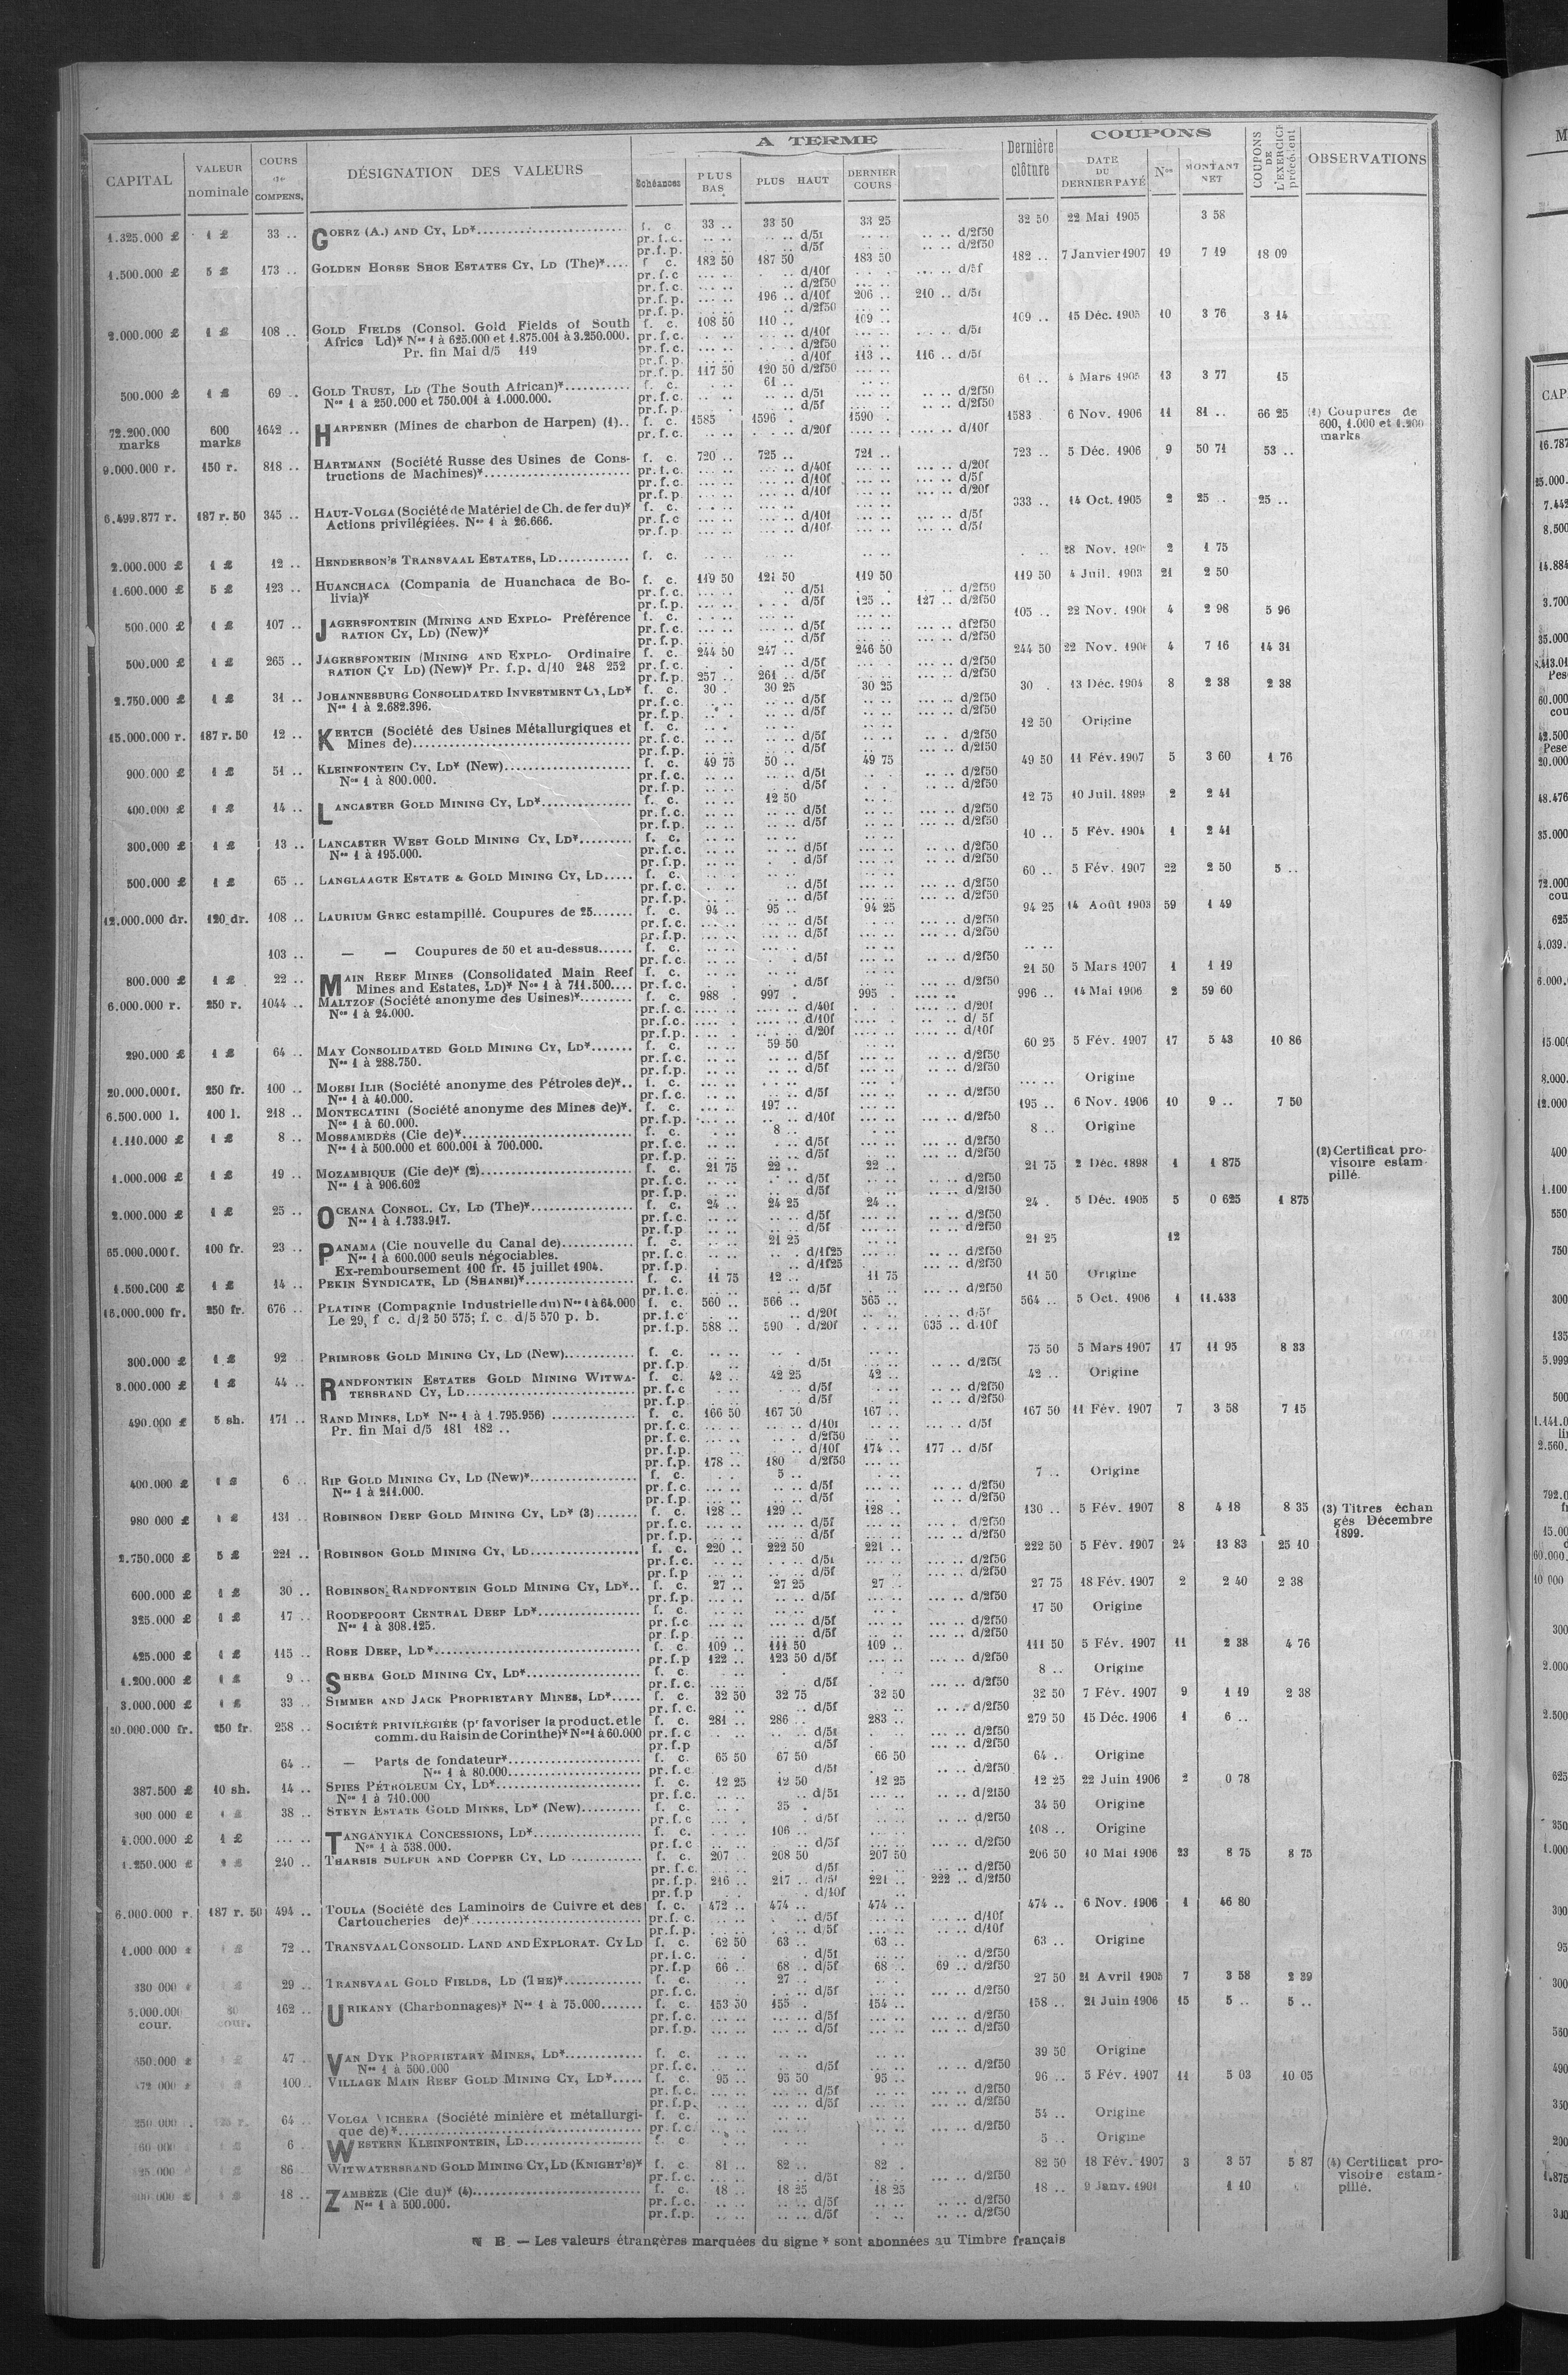 A TERME
COUPONS
CAPITAL VALEUR nominale COURS de COMPENS. DÉSIGNATION DES VALEURS Échéances PLUS BAS PLUS HAUT DERNIER COURS Dernière clôture DATE DU DERNIER PAYÉ Nos MONTANT NET COUPONS DE L'EXERCICE précédent OBSERVATIONS
1.325.000 £ 1 £ 33 .. GOERZ (A.) AND CY, LD* f. c. 33 .. 33 50 33 25 32 50 22 Mai 1905 3 58
pr.f.c. .. .. .. .. d/5f .. .. .. .. d/2f50
pr.f.p. .. .. d/5f .. .. d/2f50
1.500.000 £ 5 £ 173 .. GOLDEN HORSE SHOE ESTATES CY, LD (The)* f. c. 182 50 187 50 183 50 182 .. 7 Janvier 1907 19 7 19 18 09
pr.f.c. d/10f d/5f
pr.f.c. d/2f50
pr.f.p. 196 .. d/10f 206 .. 210 .. d/5f
pr.f.p. d/2f50
2.000.000 £ 1 £ 108 .. GOLD FIELDS (Consol. Gold Fields of South f. c. 108 50 110 .. 109 .. 109 .. 15 Déc. 1905 10 3 76 3 14
Africa Ld)* Nos 1 à 625.000 et 1.875.001 à 3.250.000. pr.f.c. d/10f d/5f
Pr. fin Mai d/5 119 pr.f.c. d/2f50
pr.f.p. d/10f 113 .. 116 .. d/5f
pr.f.p. 117 50 120 50 d/2f50
500.000 £ 1 £ 69 .. GOLD TRUST, LD (The South African)* f. c. 61 .. 61 .. 4 Mars 1905 13 3 77 15
Nos 1 à 250.000 et 750.001 à 1.000.000. pr.f.c. d/5f d/2f50
pr.f.p. d/5f d/2f50
72.200.000 marks 600 marks 1642 .. HARPENER (Mines de charbon de Harpen) (1).. f. c. 1585 1596 . 1590 . 1583 . 6 Nov. 1906 11 81 .. 66 25 (1) Coupures de 600, 1.000 et 1.200 marks
pr.f.c. d/20f d/10f
9.000.000 r. 150 r. 818 .. HARTMANN (Société Russe des Usines de Cons- f. c. 720 .. 725 .. 721 .. 723 .. 5 Déc. 1906 9 50 71 53 ..
tructions de Machines)* pr.f.c. d/40f d/20f
pr.f.c. d/10f d/5f
pr.f.p. d/10f d/20f
6.499.877 r. 187 r. 50 345 .. HAUT-VOLGA (Société de Matériel de Ch. de fer du)* f. c. 333 .. 14 Oct. 1905 2 25 .. 25 ..
Actions privilégiées. Nos 1 à 26.666. pr.f.c d/10f d/5f
pr.f.p. d/10f d/5f
2.000.000 £ 1 £ 12 .. HENDERSON'S TRANSVAAL ESTATES, LD f. c. 28 Nov. 2 1 75
1.600.000 £ 5 £ 123 .. HUANCHACA (Compania de Huanchaca de Bo- f. c. 119 50 121 50 119 50 119 50 4 Juil. 1903 21 2 50
livia)* pr.f.c. d/5f d/2f50
pr.f.p. d/5f 125 .. 127 .. d/2f50
500.000 £ 1 £ 107 .. JAGERSFONTEIN (MINING AND EXPLO- Préférence f. c. 105 .. 22 Nov. 4 2 98 5 96
RATION CY, LD) (New)* pr.f.c. d/5f df2f50
pr.f.p. d/5f d/2f50
500.000 £ 1 £ 265 .. JAGERSFONTEIN (MINING AND EXPLO- Ordinaire f. c. 244 50 247 .. 246 50 244 50 22 Nov. 4 7 16 14 31
RATION CY LD) (New)* Pr. f.p. d/10 248 252 pr.f.c. d/5f d/2f50
pr.f.p. 257 .. 261 .. d/5f d/2f50
2.750.000 £ 1 £ 31 .. JOHANNESBURG CONSOLIDATED INVESTMENT CY, LD* f. c. 30 . 30 25 30 25 30 . 13 Déc. 1904 8 2 38 2 38
Nos 1 à 2.682.396. pr.f.c. d/5f d/2f50
pr.f.p. d/5f d/2f50
15.000.000 r. 187 r. 50 12 .. KERTCH (Société des Usines Métallurgiques et f. c. 12 50 Origine
Mines de) pr.f.c. d/5f d/2f50
pr.f.p. d/5f d/2f50
900.000 £ 1 £ 51 .. KLEINFONTEIN CY, LD* (New) f. c. 49 75 50 .. 49 75 49 50 11 Fév. 1907 5 3 60 1 76
Nos 1 à 800.000. pr.f.c. d/5f d/2f50
pr.f.p. d/5f d/2f50
400.000 £ 1 £ 14 .. LANCASTER GOLD MINING CY, LD* f. c. 12 50 12 75 10 Juil. 1899 2 2 41
pr.f.c. d/5f d/2f50
pr.f.p. d/5f d/2f50
300.000 £ 1 £ 13 .. LANCASTER WEST GOLD MINING CY, LD* f. c. 10 .. 5 Fév. 1904 1 2 41
Nos 1 à 195.000. pr.f.c. d/5f d/2f50
pr.f.p. d/5f d/2f50
500.000 £ 1 £ 65 .. LANGLAAGTE ESTATE & GOLD MINING CY, LD f. c. 60 .. 5 Fév. 1907 22 2 50 5 ..
pr.f.c. d/5f d/2f50
pr.f.p. d/5f d/2f50
12.000.000 dr. 120 dr. 108 .. LAURIUM GREC estampillé. Coupures de 25 f. c. 94 .. 95 .. 94 25 94 25 14 Août 1903 59 1 49
pr.f.c. d/5f d/2f50
pr.f.p. d/5f d/2f50
103 .. — — Coupures de 50 et au-dessus f. c.
pr.f.c. d/5f d/2f50
800.000 £ 1 £ 22 .. MAIN REEF MINES (Consolidated Main Reef f. c. 21 50 5 Mars 1907 1 1 19
Mines and Estates, LD)* Nos 1 à 711.500 pr.f.c. d/5f d/2f50
6.000.000 r. 250 r. 1044 .. MALTZOF (Société anonyme des Usines)* f. c. 988 . 997 . 995 . 996 .. 14 Mai 1906 2 59 60
Nos 1 à 24.000. pr.f.c. d/40f d/20f
pr.f.c. d/10f d/ 5f
pr.f.p. d/20f d/10f
290.000 £ 1 £ 64 .. MAY CONSOLIDATED GOLD MINING CY, LD* f. c. 59 50 60 25 5 Fév. 1907 17 5 43 10 86
Nos 1 à 288.750. pr.f.c. d/5f d/2f50
pr.f.p. d/5f d/2f50
20.000.000 f. 250 fr. 100 .. MOESI ILIR (Société anonyme des Pétroles de)* f. c. Origine
Nos 1 à 40.000. pr.f.c. d/5f d/2f50
6.500.000 l. 100 l. 218 .. MONTECATINI (Société anonyme des Mines de)*. f. c. 197 .. 195 .. 6 Nov. 1906 10 9 .. 7 50
Nos 1 à 60.000. pr.f.p. d/10f d/2f50
1.110.000 £ 1 £ 8 .. MOSSAMEDÈS (Cie de)* f. c. 8 .. 8 .. Origine
Nos 1 à 500.000 et 600.001 à 700.000. pr.f.c. d/5f d/2f50
pr.f.p. d/5f d/2f50
1.000.000 £ 1 £ 19 .. MOZAMBIQUE (Cie de)* (2) f. c. 21 75 22 .. 22 .. 21 75 2 Déc. 1898 1 1 875 (2) Certificat provisoire estampillé.
Nos 1 à 906.602 pr.f.c. d/5f d/2f50
pr.f.p. d/5f d/2f50
2.000.000 £ 1 £ 25 .. OCEANA CONSOL. CY, LD (The)* f. c. 24 .. 24 25 24 .. 24 . 5 Déc. 1905 5 0 625 1 875
Nos 1 à 1.733.917. pr.f.c. d/5f d/2f50
pr.f.p d/5f d/2f50
65.000.000 f. 100 fr. 23 .. PANAMA (Cie nouvelle du Canal de) f. c. 21 25 21 25 12
Nos 1 à 600.000 seuls négociables. pr.f.c. d/1f25 d/2f50
Ex-remboursement 100 fr. 15 juillet 1904. pr.f.p. d/1f25 d/2f50
1.500.000 £ 1 £ 14 .. PEKIN SYNDICATE, LD (SHANSI)* f. c. 11 75 12 .. 11 75 11 50 Origine
pr.f.c. d/5f d/2f50
16.000.000 fr. 250 fr. 676 .. PLATINE (Compagnie Industrielle du) Nos 1 à 64.000 f. c. 560 .. 566 .. 565 .. 564 .. 5 Oct. 1906 1 11.433
Le 29, f c. d/2 50 575; f. c. d/5 570 p. b. pr.f.c d/20f d/5f
pr.f.p. 588 .. 590 . d/20f 635 .. d/10f
300.000 £ 1 £ 92 .. PRIMROSE GOLD MINING CY, LD (New) f. c. 75 50 5 Mars 1907 17 11 95 8 33
pr.f.p. d/5f d/2f50
3.000.000 £ 1 £ 44 .. RANDFONTEIN ESTATES GOLD MINING WITWA- f. c. 42 .. 42 25 42 .. 42 .. Origine
TERSRAND CY, LD pr.f.c d/5f d/2f50
pr.f.p. d/5f d/2f50
490.000 £ 5 sh. 171 .. RAND MINES, LD* Nos 1 à 1.795.956) f. c. 166 50 167 50 167 .. 167 50 11 Fév. 1907 7 3 58 7 15
Pr. fin Mai d/5 181 182 .. pr.f.c. d/10f d/5f
pr.f.c. d/2f50
pr.f.p. d/10f 174 .. 177 .. d/5f
pr.f.p. 178 .. 180 d/2f50
400.000 £ 1 £ 6 .. RIP GOLD MINING CY, LD (New)* f. c. 5 .. 7 .. Origine
Nos 1 à 211.000. pr.f.c. d/5f d/2f50
pr.f.p. d/5f d/2f50
980 000 £ 1 £ 131 .. ROBINSON DEEP GOLD MINING CY, LD* (3) f. c. 128 .. 129 .. 128 .. 130 .. 5 Fév. 1907 8 4 18 8 35 (3) Titres échangés Décembre 1899.
pr.f.c. d/5f d/2f50
pr.f.p. d/5f d/2f50
2.750.000 £ 5 £ 221 .. ROBINSON GOLD MINING CY, LD f. c. 220 .. 222 50 221 .. 222 50 5 Fév. 1907 24 13 83 25 10
pr.f.c. d/5f d/2f50
pr.f.p d/5f d/2f50
600.000 £ 1 £ 30 .. ROBINSON RANDFONTEIN GOLD MINING CY, LD*.. f. c. 27 .. 27 25 27 . 27 75 18 Fév. 1907 2 2 40 2 38
pr.f.p. d/5f d/2f50
325.000 £ 1 £ 17 .. ROODEPOORT CENTRAL DEEP LD* f. c. 17 50 Origine
Nos 1 à 308.125. pr.f.c d/5f d/2f50
pr.f.p d/5f d/2f50
425.000 £ 1 £ 115 .. ROSE DEEP, LD* f. c. 109 .. 111 50 109 .. 111 50 5 Fév. 1907 11 2 38 4 76
pr.f.p 122 .. 123 50 d/5f d/2f50
1.200.000 £ 1 £ 9 .. SHEBA GOLD MINING CY, LD* f. c. 8 .. Origine
pr.f.c. d/5f d/2f50
3.000.000 £ 1 £ 33 .. SIMMER AND JACK PROPRIETARY MINES, LD* f. c. 32 50 32 75 32 50 32 50 7 Fév. 1907 9 1 19 2 38
pr.f.c. d/5f d/2f50
20.000.000 fr. 250 fr. 258 .. SOCIÉTÉ PRIVILÉGIÉE (pr favoriser la product. et le f. c. 281 .. 286 .. 283 .. 279 50 15 Déc. 1906 1 6 ..
comm. du Raisin de Corinthe)* Nos 1 à 60.000 pr.f.c d/5f d/2f50
pr.f.p d/5f d/2f50
64 .. — Parts de fondateur* f. c. 65 50 67 50 66 50 64 .. Origine
Nos 1 à 80.000 pr.f.c d/5f d/2f50
387.500 £ 10 sh. 14 .. SPIES PÉTROLEUM CY, LD* f. c. 12 25 12 50 12 25 12 25 22 Juin 1906 2 0 78
Nos 1 à 710.000 pr.f.c. d/5f d/2f50
300 000 £ 1 £ 38 .. STEYN ESTATE GOLD MINES, LD* (New) f. c. 35 . 34 50 Origine
pr.f.c d/5f d/2f50
4.000.000 £ 1 £ .... .. TANGANYIKA CONCESSIONS, LD* f. c. 106 .. 108 .. Origine
Nos 1 à 538.000. pr.f.c d/5f d/2f50
1.250.000 £ 240 .. THARSIS SULFUR AND COPPER CY, LD f. c. 207 .. 208 50 207 50 206 50 10 Mai 1906 23 8 75 8 75
pr.f.c. d/5f d/2f50
pr.f.p. 216 .. 217 .. d/5f 221 .. 222 .. d/2f50
pr.f.p d/10f
6.000.000 r. 187 r. 50 494 .. TOULA (Société des Laminoirs de Cuivre et des f. c. 472 .. 474 .. 474 .. 474 .. 6 Nov. 1906 1 46 80
Cartoucheries de)* pr.f.c. d/5f d/10f
pr.f.p. d/5f d/10f
1.000 000 £ 1 £ 72 .. TRANSVAAL CONSOLID. LAND AND EXPLORAT. CY LD f. c. 62 50 63 .. 63 .. 63 .. Origine
pr.f.c. d/5f d/2f50
pr.f.p 66 .. 68 .. d/5f 68 .. 69 .. d/2f50
330 000 £ 1 £ 29 .. TRANSVAAL GOLD FIELDS, LD (THE)* f. c. 27 .. 27 50 21 Avril 1905 7 3 58 2 39
pr.f.c. d/5f d/2f50
cour. 162 .. URIKANY (Charbonnages)* Nos 1 à 75.000 f. c. 153 50 155 . 154 .. 158 .. 21 Juin 1906 15 5 .. 5 ..
pr.f.c. d/5f d/2f50
pr.f.p. d/5f d/2f50
47 .. VAN DYK PROPRIETARY MINES, LD* f. c. 39 50 Origine
Nos 1 à 500.000 pr.f.c. d/5f d/2f50
100 .. VILLAGE MAIN REEF GOLD MINING CY, LD* f. c. 95 .. 95 50 95 .. 96 .. 5 Fév. 1907 11 5 03 10 05
pr.f.c. d/5f d/2f50
pr.f.p. d/5f d/2f50
64 .. VOLGA VICHERA (Société minière et métallurgi- f. c. 54 .. Origine
que de)* pr.f.c. d/2f50
6 .. WESTERN KLEINFONTEIN, LD f. c. 5 .. Origine
86 .. WITWATERSRAND GOLD MINING CY, LD (KNIGHT'S)* f. c. 81 .. 82 .. 82 . 82 50 18 Fév. 1907 3 3 57 5 87 (4) Certificat provisoire estampillé.
pr.f.c. d/5f d/2f50
18 .. ZAMBÈZE (Cie du)* (4) f. c. 18 .. 18 25 18 25 18 .. 9 Janv. 1 10
Nos 1 à 500.000. pr.f.c. d/5f d/2f50
pr.f.p d/5f d/2f50
N B. — Les valeurs étrangères marquées du signe * sont abonnées au Timbre français